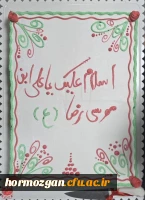 السلام علیک یا علی ابن
موسی رضا (ع)
hormozgan.cfu.ac.ir